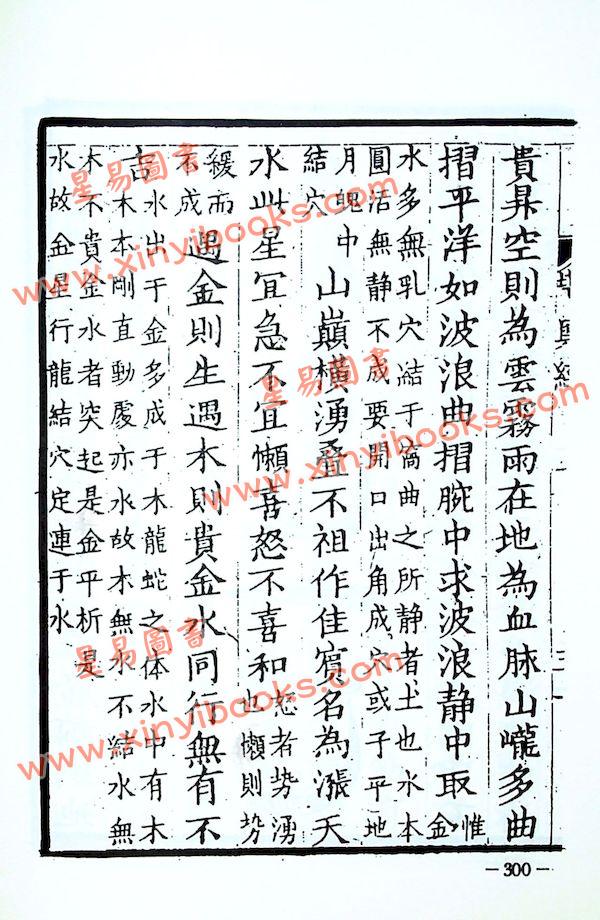 貴昇空則為雲霧雨在地為血脉山巄多曲
摺平洋如波浪曲摺腕中求波浪静中取惟
金
水多無乳穴结于窩曲之所静者土也水本
圓活無静不成要開口出角成穴或子平地
月魄中
结穴
山巔橫湧叠不祖作佳賔名為漲天
水此星冝急不冝懶喜怒不喜和
怒者势湧
也懶則势
緩而
不成
遇金則生遇木則貴金水同行無有不
吉
水出于金多成于木龍蛇之体水中有木
木本剛直動處亦水故木無水不结水無
木不貴金水者突起是金平析是
水故金星行龍结穴定連于水
-300-
星易圖書
www.xinyibooks.com
星易圖書
www.xinyibooks.com
星易圖書
www.xinyibooks.com